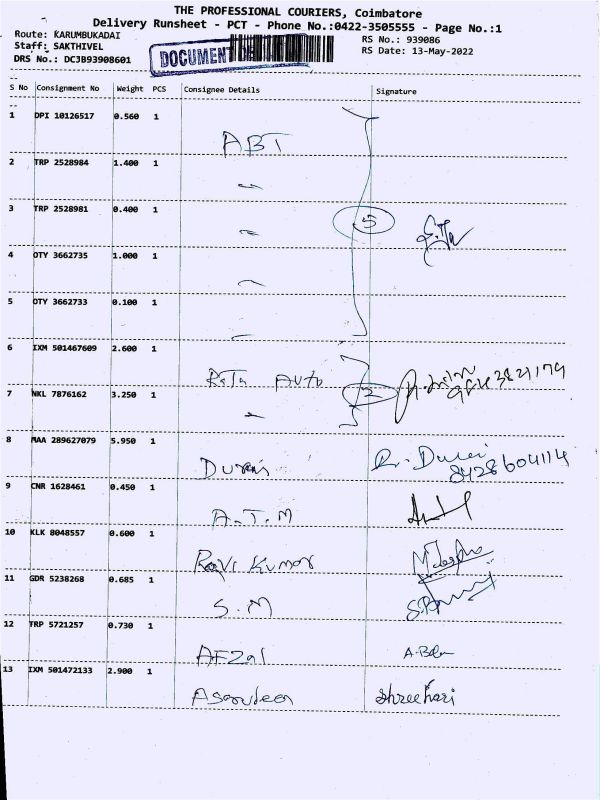 THE PROFESSIONAL COURIERS, Coimbatore
Delivery Runsheet - PCT - Phone No.:0422-3505555 - Page No.:1
Route: KARUMBUKADAI
RS No.: 939086
Staff: SAKTHIVEL
RS Date: 13-May-2022
DRS No.: DCJB93908601
DOCUMENT
S No Consignment No Weight PCS Consignee Details Signature
1 DPI 10126517 0.560 1
ABT
2 TRP 2528984 1.400 1
3 TRP 2528981 0.400 1
5
4 OTY 3662735 1.000 1
5 OTY 3662733 0.100 1
6 IXM 501467609 2.600 1
Auto
7 NKL 7876162 3.250 1
2
8 MAA 289627079 5.950 1
Durai R. Durai
8428604114
9 CNR 1628461 0.450 1
A.T.M
10 KLK 8048557 0.600 1
Ravi Kumar
11 GDR 5238268 0.685 1
S.M
12 TRP 5721257 0.730 1
AFZal
13 IXM 501472133 2.900 1
Shreehari